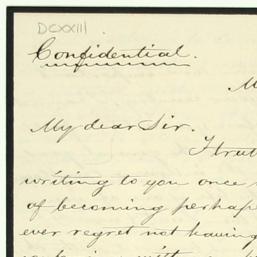 DCXXIII
Confidential.
My dear Sir.
writing to you once
of becoming perhaps
ever regret not having